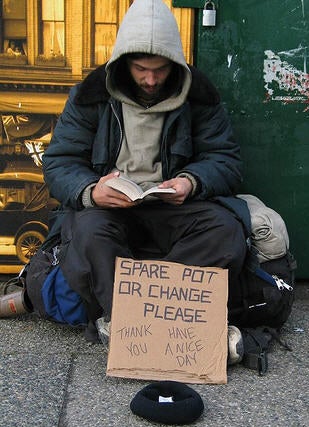 SPARE POT
OR CHANGE
PLEASE
THANK HAVE
YOU A NICE
DAY